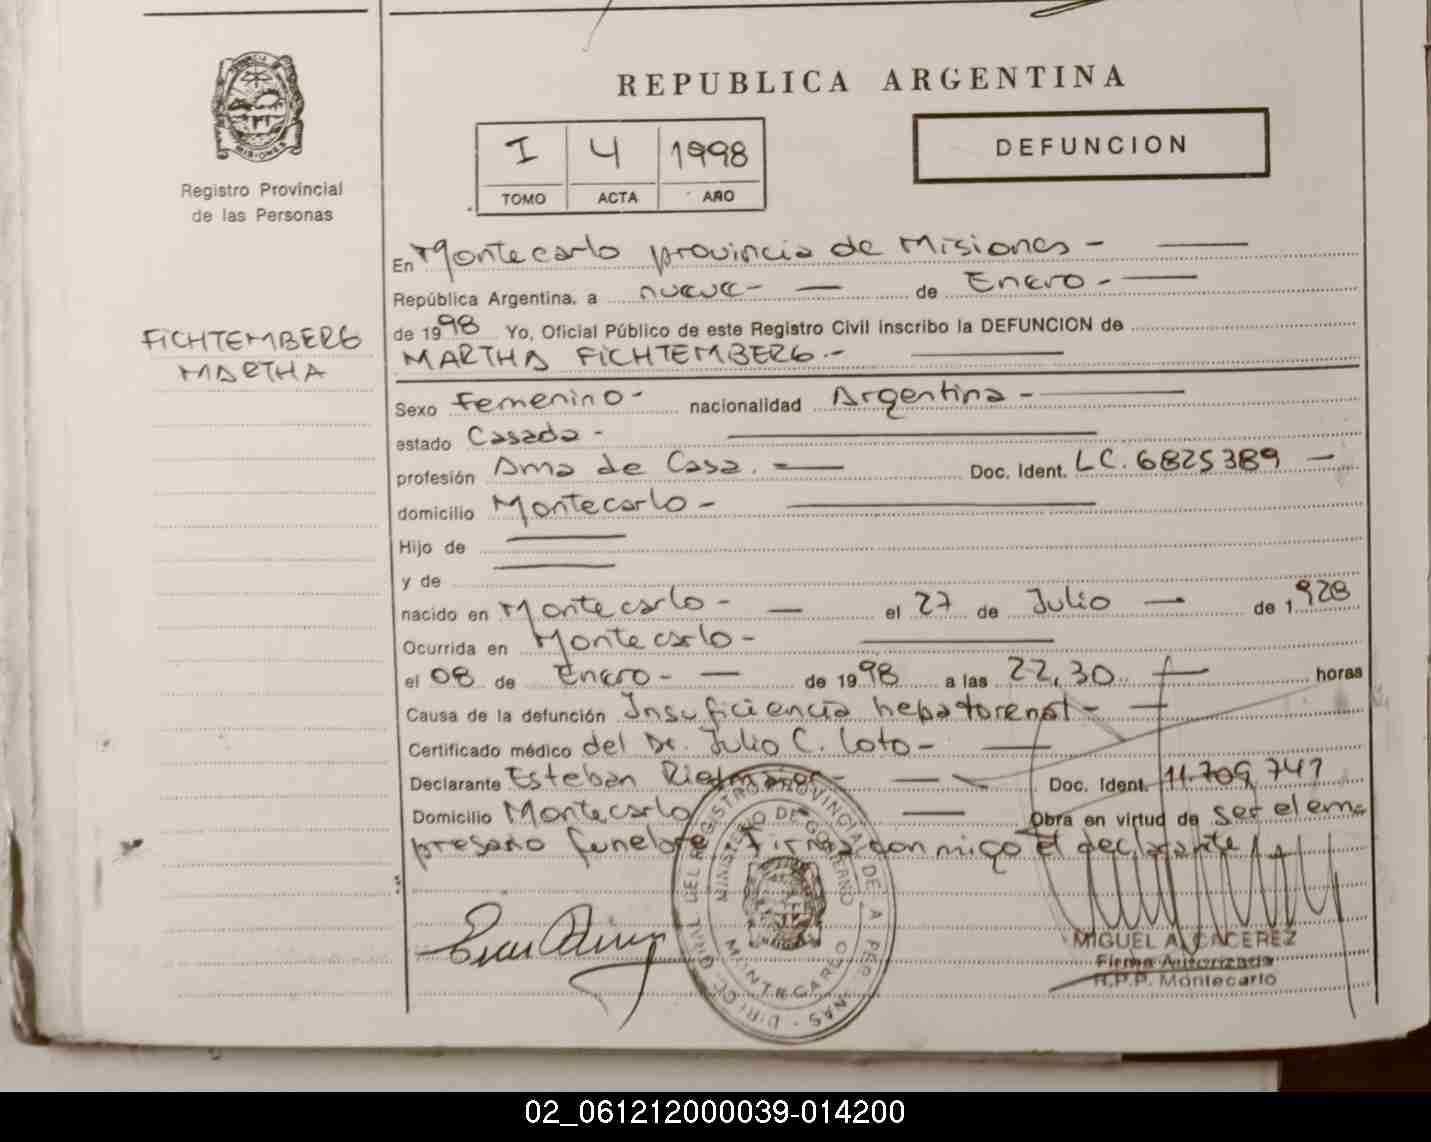 REPUBLICA ARGENTINA
DEFUNCION
I 4 1998
TOMO ACTA AÑO
PROVINCIA DE
MISIONES
Registro Provincial
de las Personas
FICHTEMBERG
MARTHA
En Montecarlo provincia de Misiones -
República Argentina, a nueve - de Enero -
de 1998 Yo, Oficial Público de este Registro Civil inscribo la DEFUNCION de
MARTHA FICHTEMBERG.-
Sexo Femenino - nacionalidad Argentina -
estado Casada -
profesión Ama de Casa. - Doc. Ident. LC. 6825389 -
domicilio Montecarlo -
Hijo de
y de
nacido en Montecarlo - el 27 de Julio - de 1.928
Ocurrida en Montecarlo -
el 08 de Enero - de 1998 a las 22,30 horas
Causa de la defunción Insuficiencia hepatorenal -
Certificado médico del Dr. Julio C. Loto -
Declarante Esteban Doc. Ident. 11.709,747
Domicilio Montecarlo Obra en virtud de ser el em
presario funebre. Firma conmigo el declarante
DIR. GRAL. DEL REGISTRO PROVINCIAL DE LA PERSONAS
MINISTERIO DE GOBIERNO
MONTECARLO
MIGUEL A. CACEREZ
Firma Autorizada
R.P.P. Montecarlo
02_061212000039-014200